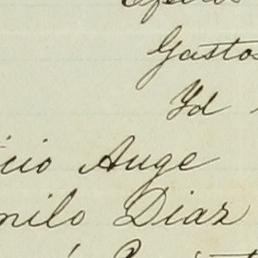 Gastos
Yd
cio Auge
nilo Diaz